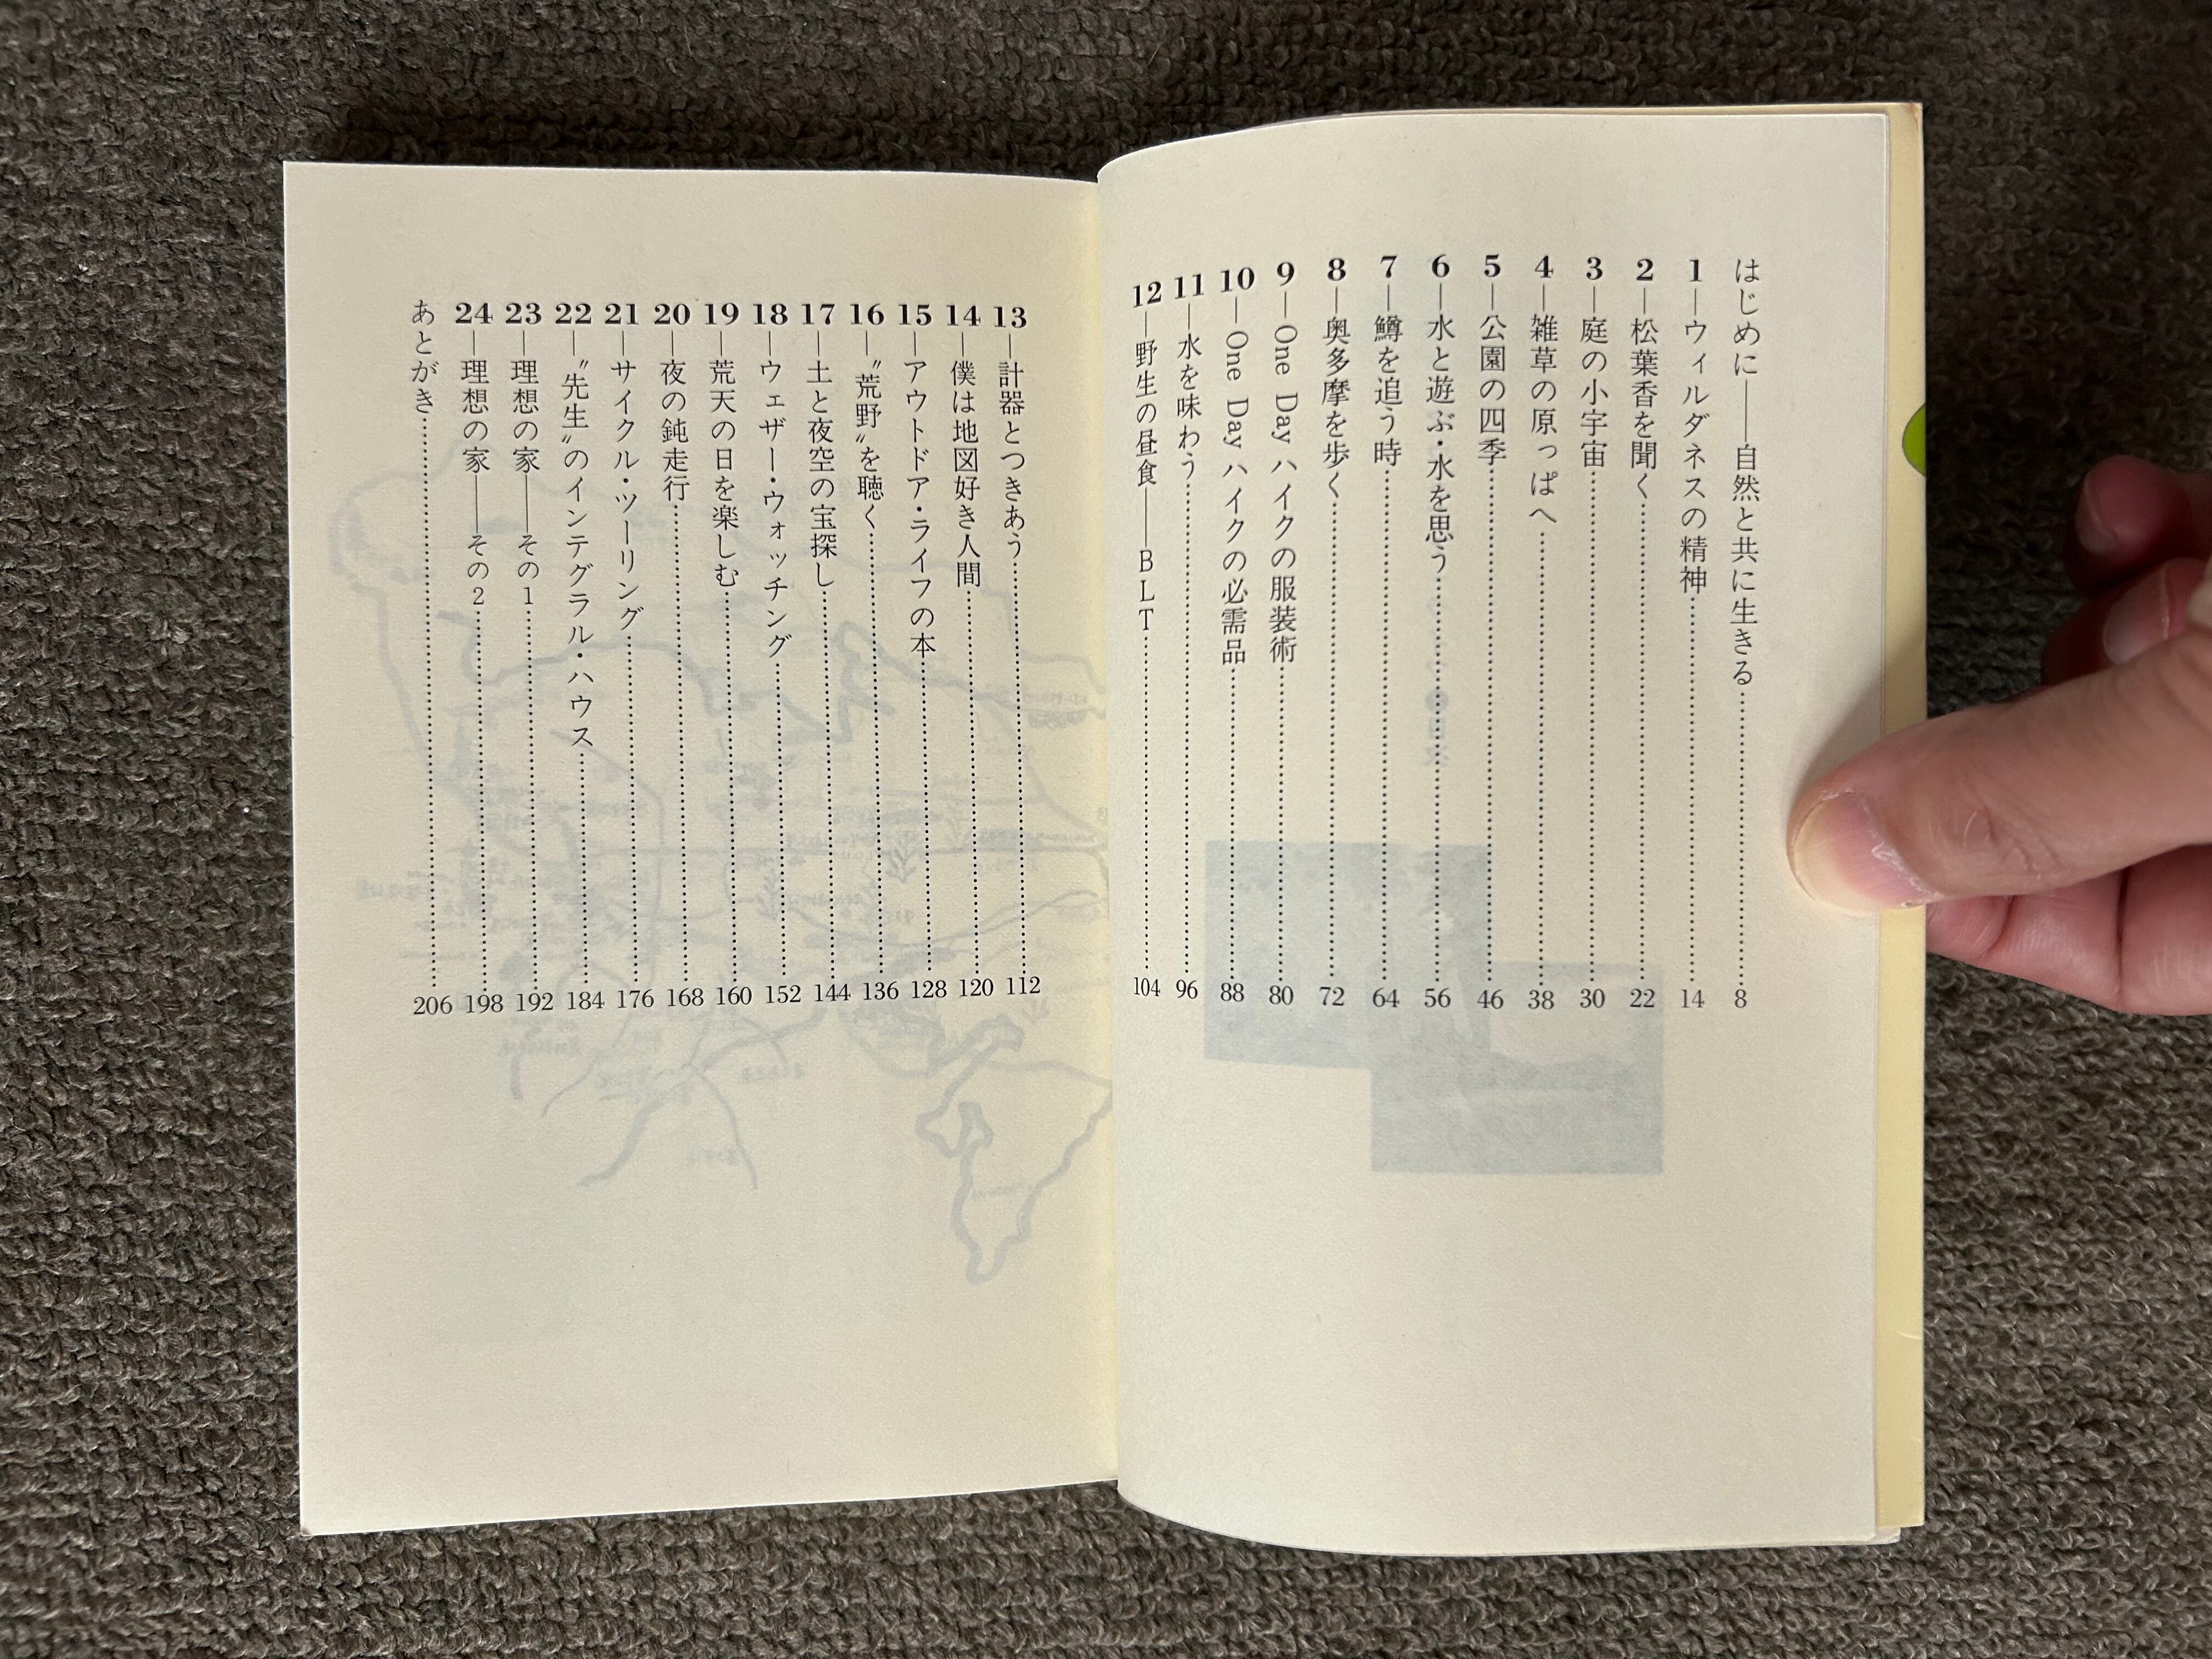 はじめに――自然と共に生きる……8
1―ウィルダネスの精神……14
2―松葉香を聞く……22
3―庭の小宇宙……30
4―雑草の原っぱへ……38
5―公園の四季……46
6―水と遊ぶ・水を思う……56
7―鱒を追う時……64
8―奥多摩を歩く……72
9―One Day ハイクの服装術……80
10―One Day ハイクの必需品……88
11―水を味わう……96
12―野生の昼食――BLT……104
13―計器とつきあう……112
14―僕は地図好き人間……120
15―アウトドア・ライフの本……128
16―〝荒野〟を聴く……136
17―土と夜空の宝探し……144
18―ウェザー・ウォッチング……152
19―荒天の日を楽しむ……160
20―夜の鈍走行……168
21―サイクル・ツーリング……176
22―〝先生〟のインテグラル・ハウス……184
23―理想の家――その1……192
24―理想の家――その2……198
あとがき……206